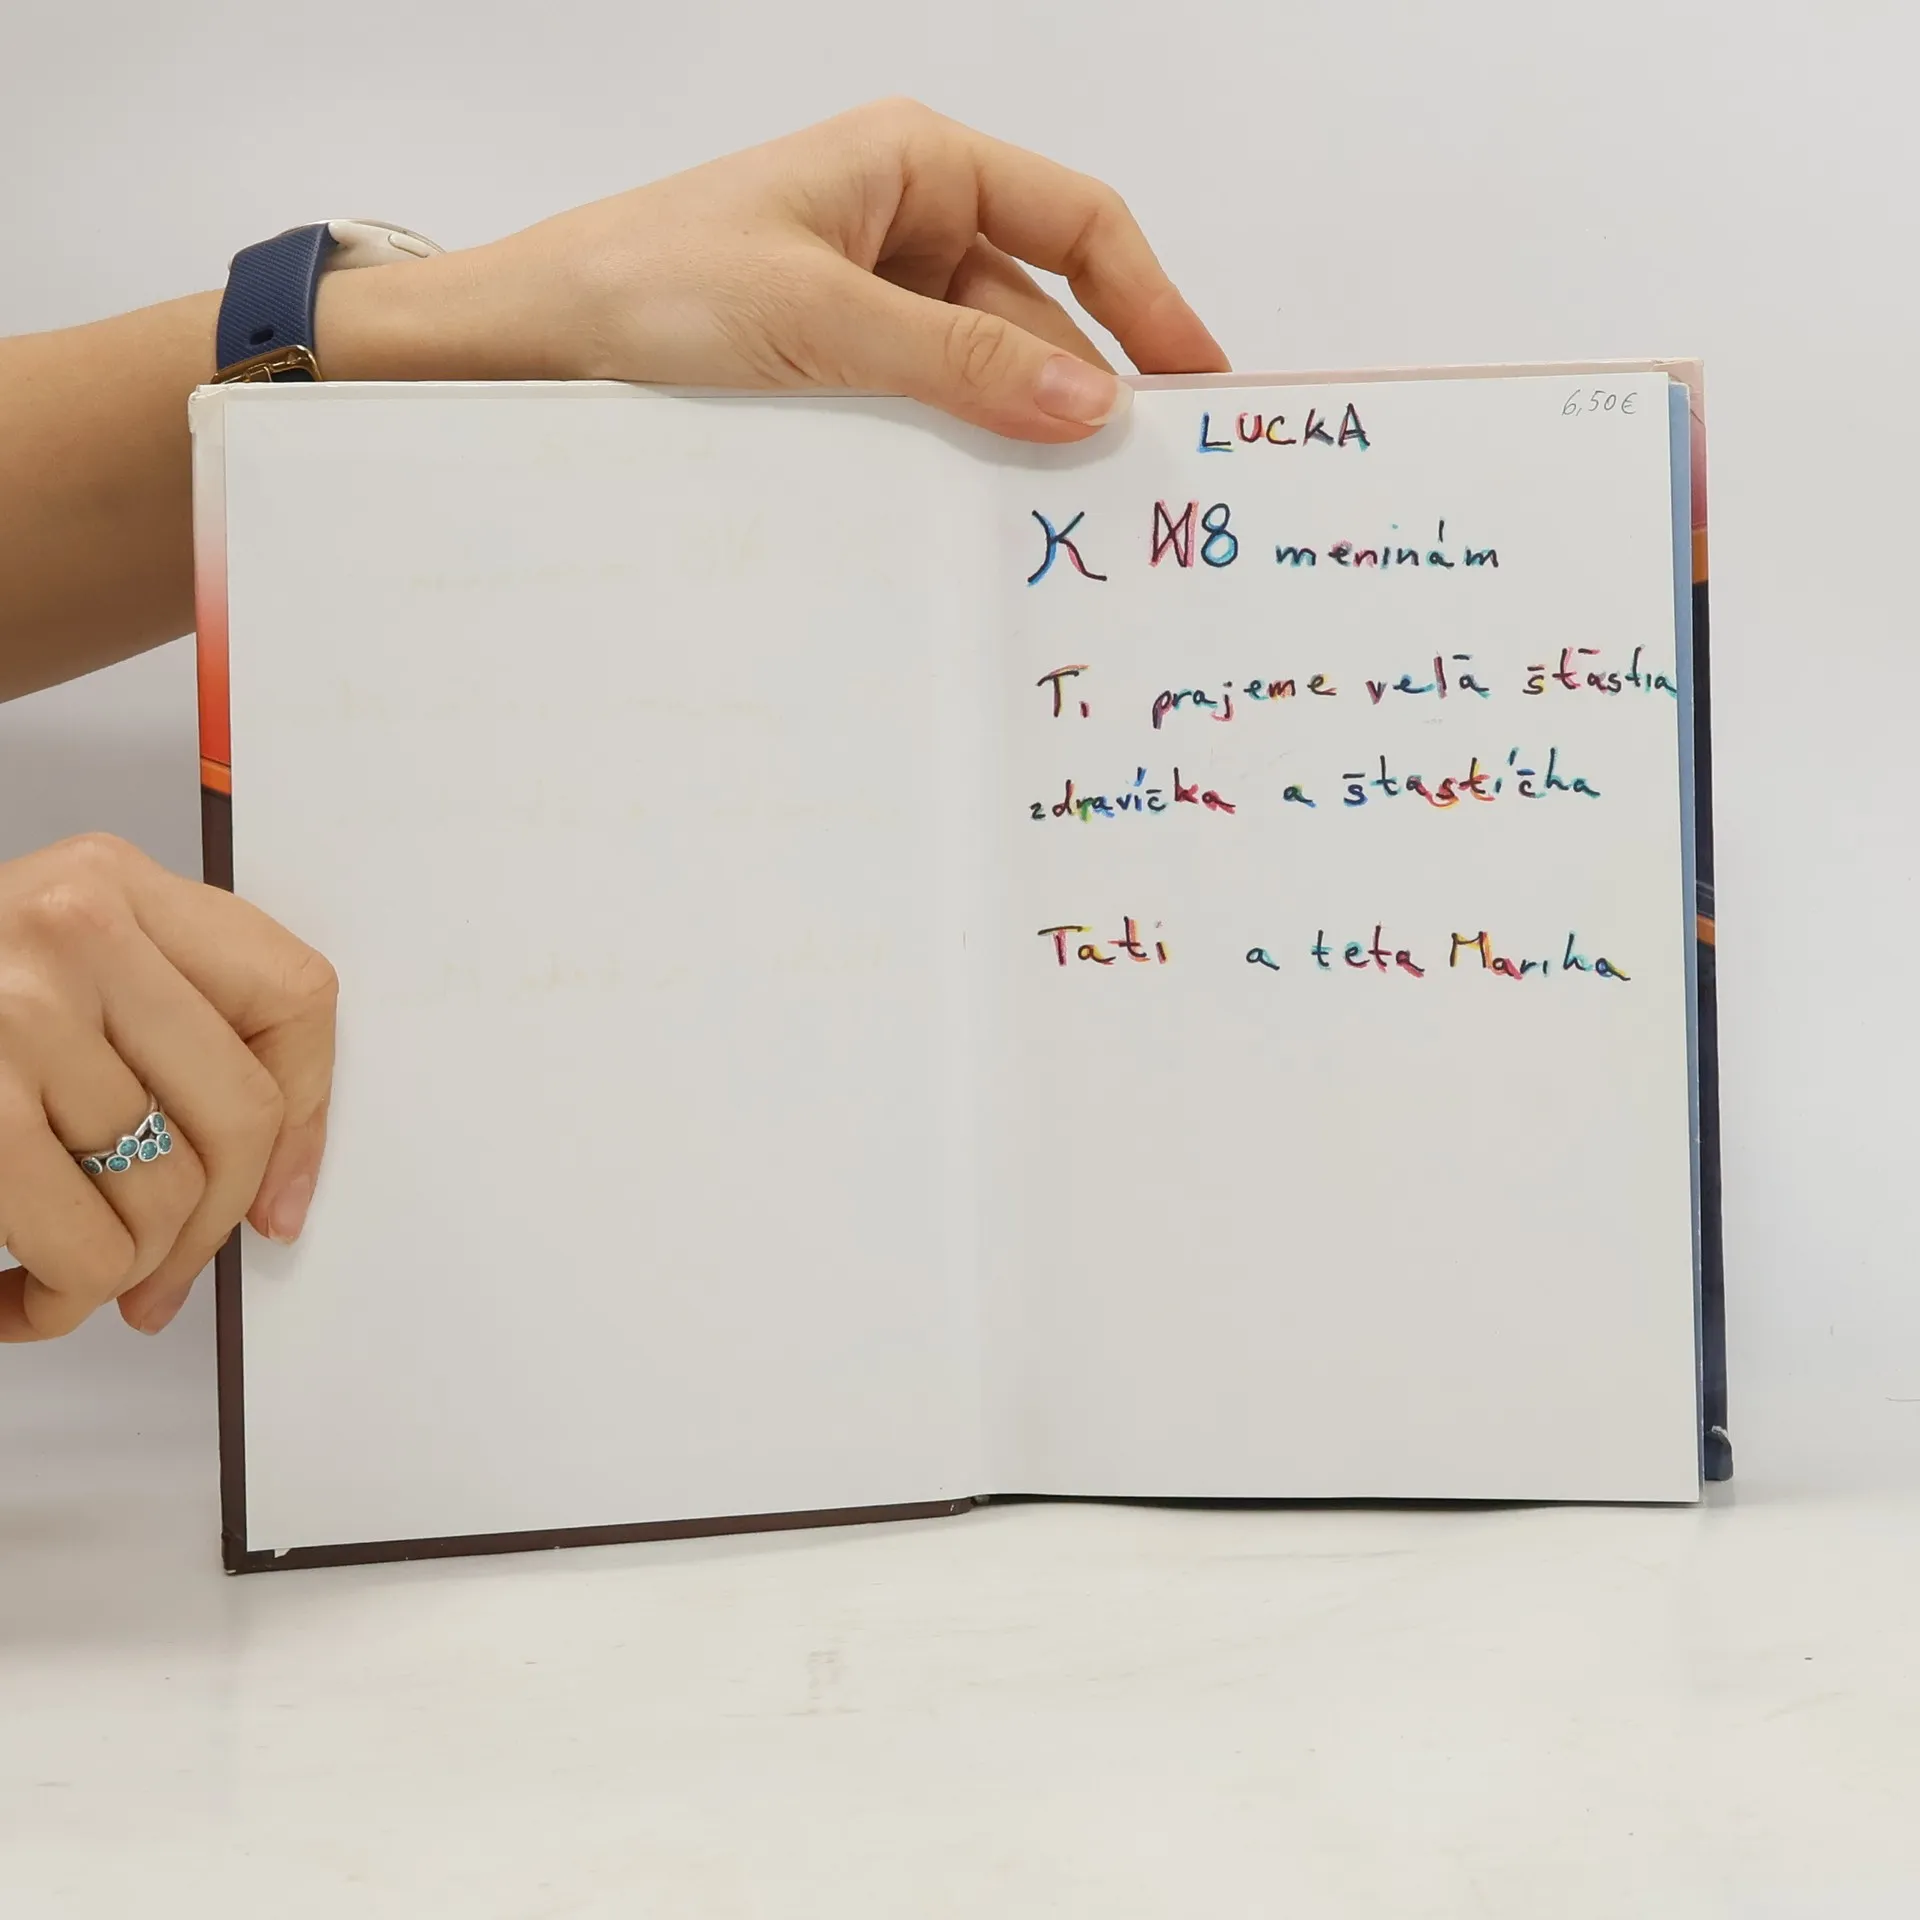 6,50€
LUCKA
K 8 meninám
Ti prajeme velā štāstia
zdravíčka a šťastíčka
Tati a teta Marika